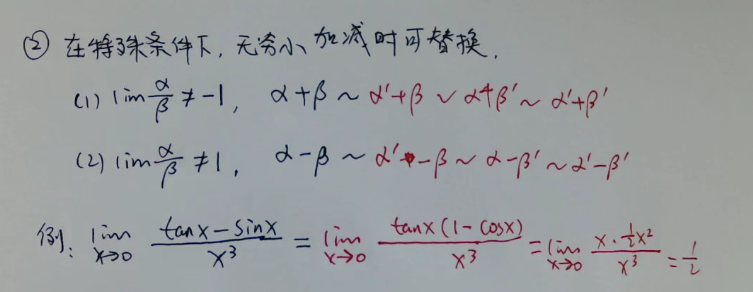 ② 在特殊条件下,无穷小加减时可替换.
(1) lim α/β ≠ -1, α+β ~ α'+β ~ α+β' ~ α'+β'
(2) lim α/β ≠ 1, α-β ~ α'-β ~ α-β' ~ α'-β'
例: lim x→0 (tanx-sinx)/x³ = lim x→0 tanx(1-cosx)/x³ = lim x→0 (x·½x²)/x³ = 1/2